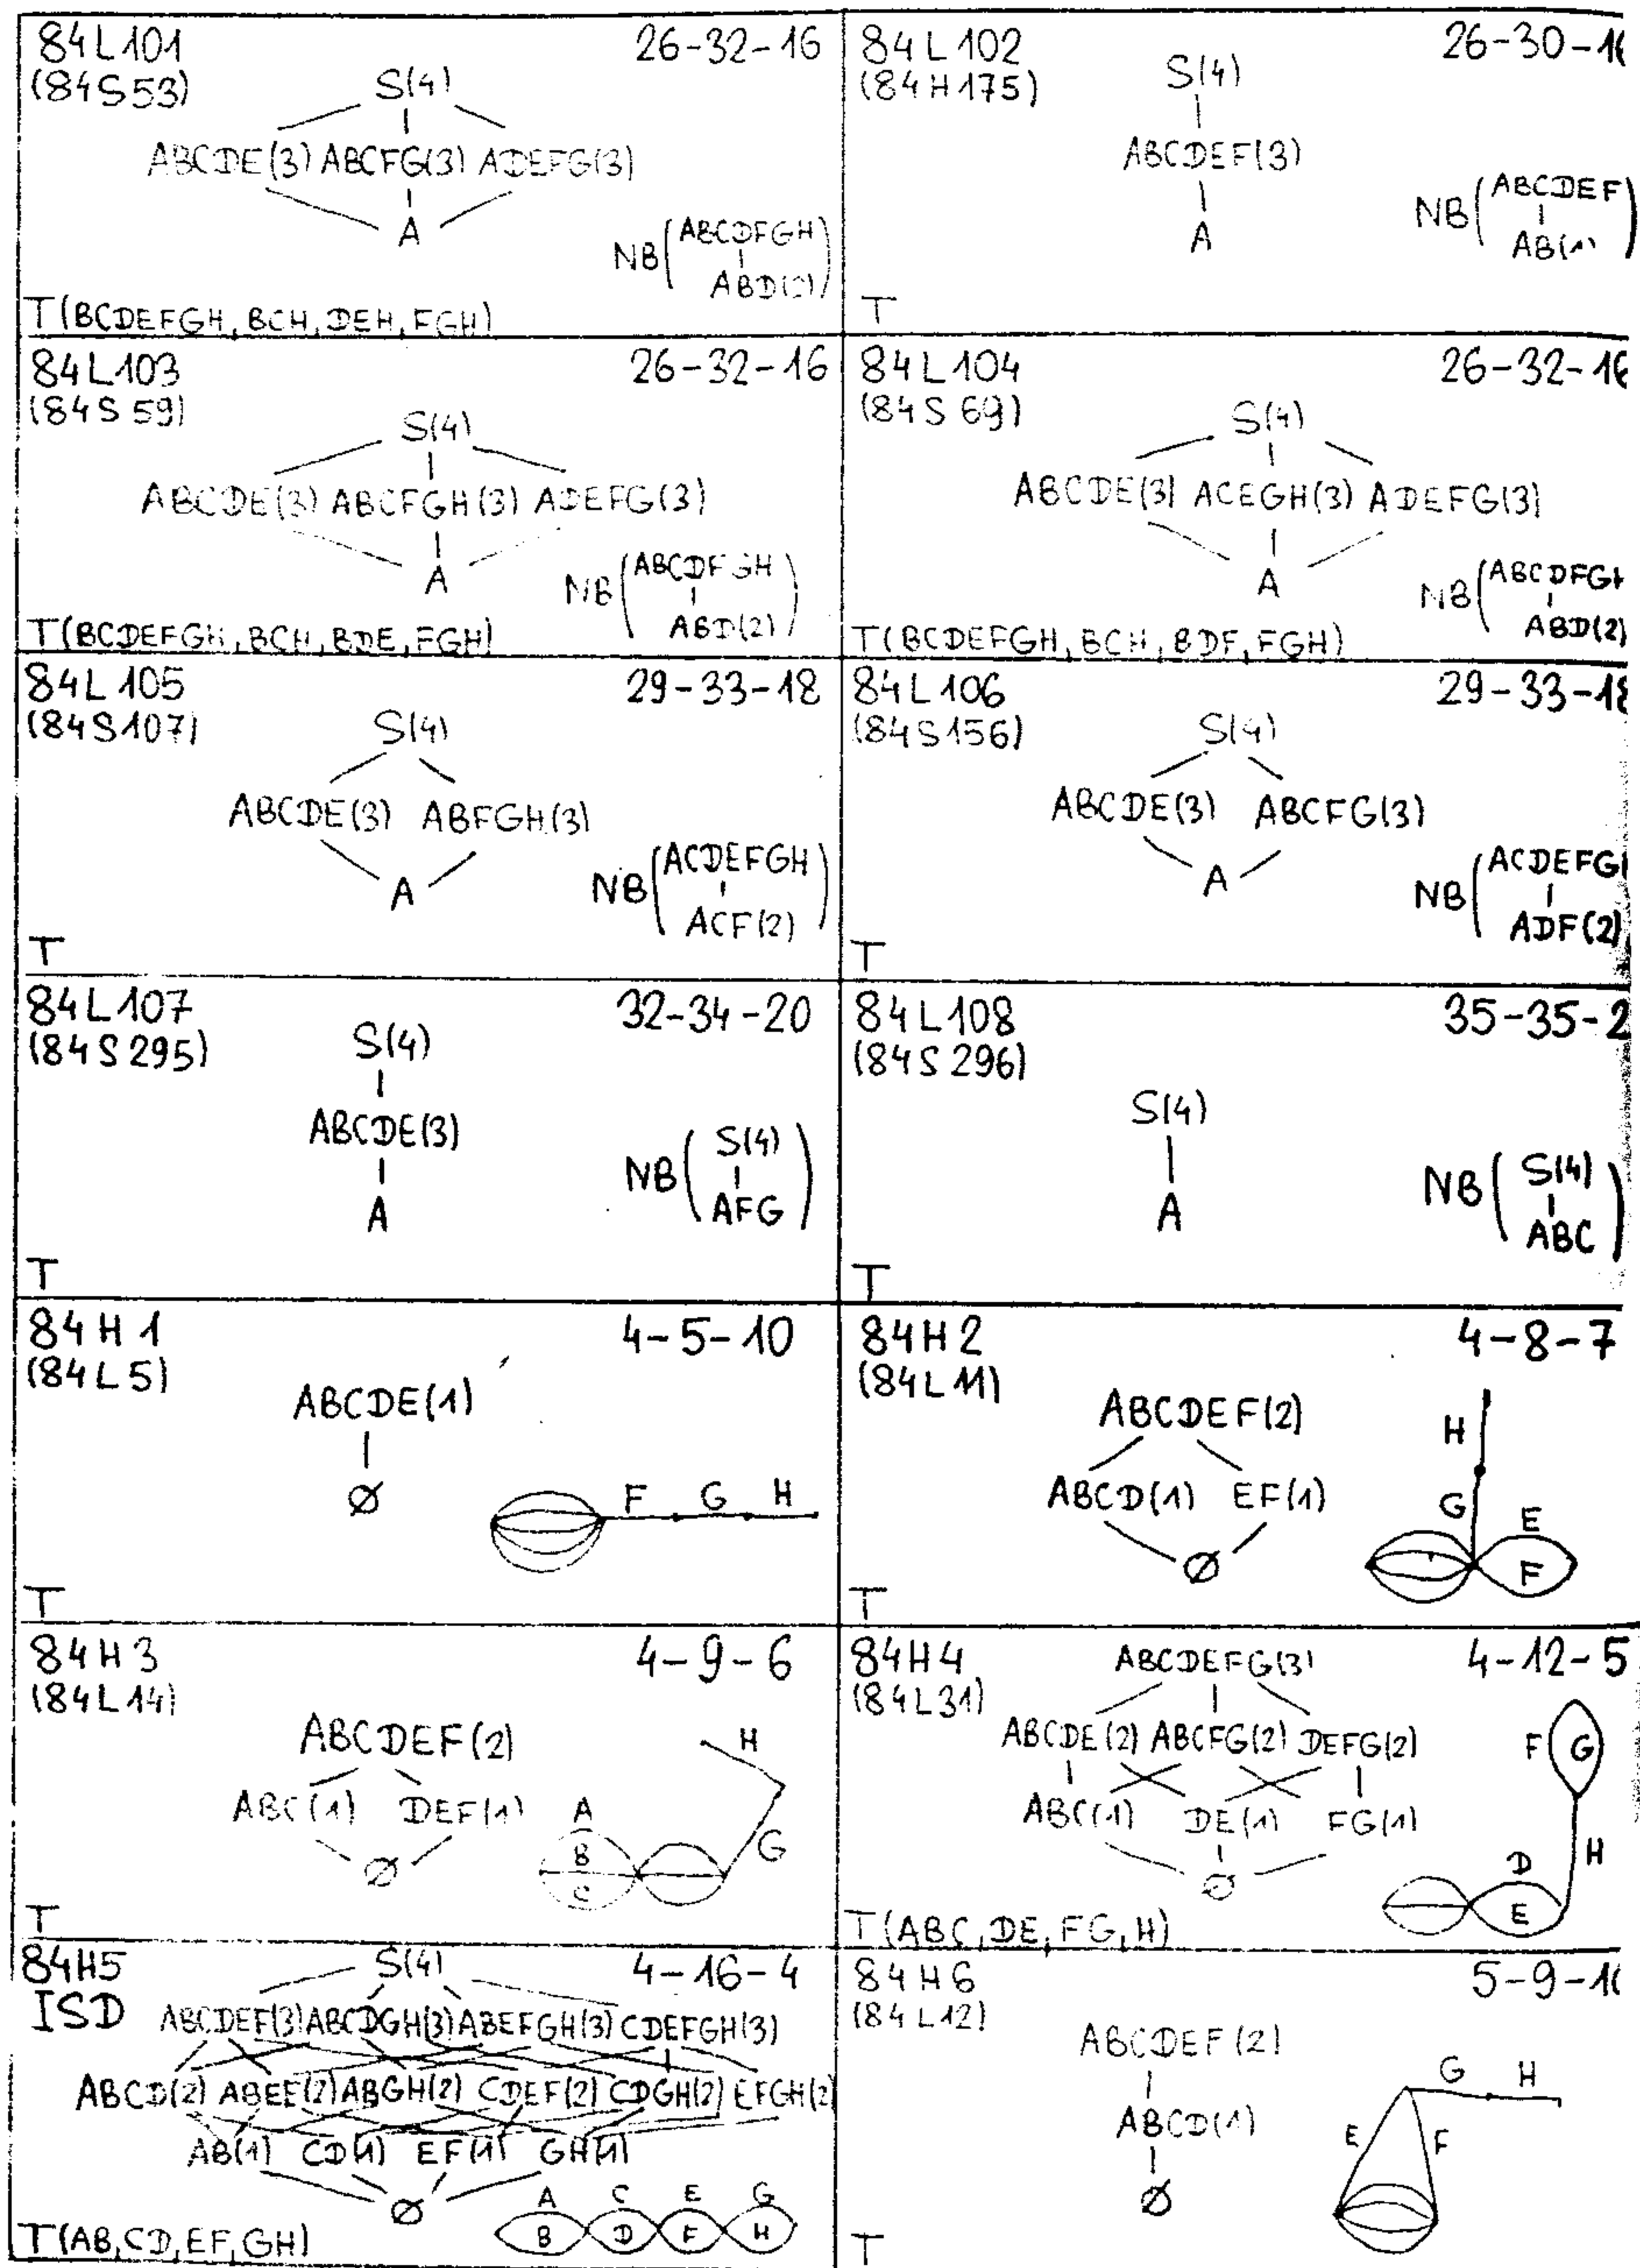 84L101 26-32-16
(84S53) S(4)
ABCDE(3) ABCFG(3) ADEFG(3)
A
NB(ABCDFGH
ABD(2))
T(BCDEFGH, BCH, DEH, FGH)
84L102 26-30-1
(84H175) S(4)
ABCDEF(3)
A
NB(ABCDEF
AB(1))
T
84L103 26-32-16
(84S59)
S(4)
ABCDE(3) ABCFGH(3) ADEFG(3)
A
NB(ABCDFGH
ABD(2))
T(BCDEFGH, BCH, BDE, FGH)
84L104 26-32-16
(84S69)
S(4)
ABCDE(3) ACEGH(3) ADEFG(3)
A
NB(ABCDFGH
ABD(2)
T(BCDEFGH, BCH, BDF, FGH)
84L105 29-33-18
(84S107) S(4)
ABCDE(3) ABFGH(3)
A
NB(ACDEFGH
ACF(2))
T
84L106 29-33-18
(84S156) S(4)
ABCDE(3) ABCFG(3)
A
NB(ACDEFG
ADF(2)
T
84L107 32-34-20
(84S295) S(4)
ABCDE(3)
A
NB(S(4)
AFG)
T
84L108 35-35-2
(84S296)
S(4)
A
NB(S(4)
ABC)
T
84H1 4-5-10
(84L5)
ABCDE(1)
Ø
F G H
T
84H2 4-8-7
(84L11)
ABCDEF(2)
ABCD(1) EF(1)
Ø
H
G E
F
T
84H3 4-9-6
(84L14)
ABCDEF(2)
ABC(1) DEF(1)
Ø
H
A
B G
C
T
84H4 ABCDEFG(3) 4-12-5
(84L31)
ABCDE(2) ABCFG(2) DEFG(2)
ABC(1) DE(1) FG(1)
Ø
F G
H
D
E
T(ABC, DE, FG, H)
84H5 S(4) 4-16-4
ISD ABCDEF(3) ABCDGH(3) ABEFGH(3) CDEFGH(3)
ABCD(2) ABEF(2) ABGH(2) CDEF(2) CDGH(2) EFGH(2)
AB(1) CD(1) EF(1) GH(1)
Ø
A C E G
B D F H
T(AB, CD, EF, GH)
84H6 5-9-1
(84L12)
ABCDEF(2)
ABCD(1)
Ø
G H
E F
T